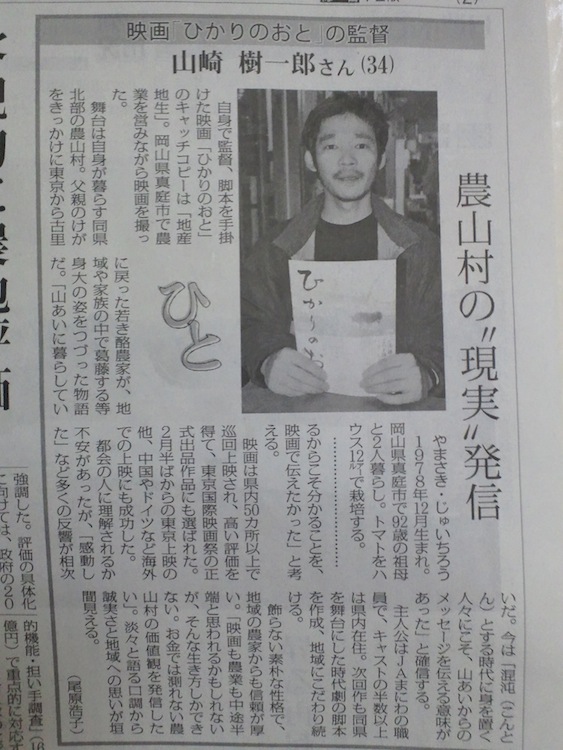 映画「ひかりのおと」の監督
山崎 樹一郎さん(34)
農山村の"現実"発信
ひかりのお
ひと
自身で監督、脚本を手掛
けた映画「ひかりのおと」
のキャッチコピーは「地産
地生」。岡山県真庭市で農
業を営みながら映画を撮っ
た。
舞台は自身が暮らす同県
北部の農山村。父親のけが
をきっかけに東京から古里
に戻った若き酪農家が、地
域や家族の中で葛藤する等
身大の姿をつづった物語
だ。「山あいに暮らしてい
やまさき・じゅいちろう
1978年12月生まれ。
岡山県真庭市で92歳の祖母
と2人暮らし。トマトをハ
ウス12㌃で栽培する。
るからこそ分かることを、
映画で伝えたかった」と考
える。
映画は県内50カ所以上で
巡回上映され、高い評価を
得て、東京国際映画祭の正
式出品作品にも選ばれた。
2月半ばからの東京上映の
他、中国やドイツなど海外
での上映にも成功した。
都会の人に理解されるか
不安があったが、「感動し
た」など多くの反響が相次
いだ。今は「混沌(こんと
ん)とする時代に身を置く
人々にこそ、山あいからの
メッセージを伝える意味が
あった」と確信する。
主人公はJAまにわの職
員で、キャストの半数以上
は県内在住。次回作も同県
を舞台にした時代劇の脚本
を作成、地域にこだわり続
ける。
飾らない素朴な性格で、
地域の農家からも信頼が厚
い。「映画も農業も中途半
端と思われるかもしれない
が、そんな生き方しかでき
ない。お金では測れない農
山村の価値観を発信した
い」。淡々と語る口調から
誠実さと地域への思いが垣
間見える。
(尾原浩子)
強調した。評価の具体化
に向けては、政府の20
的機能・担い手調査」(16
億円)で重点的に対応す